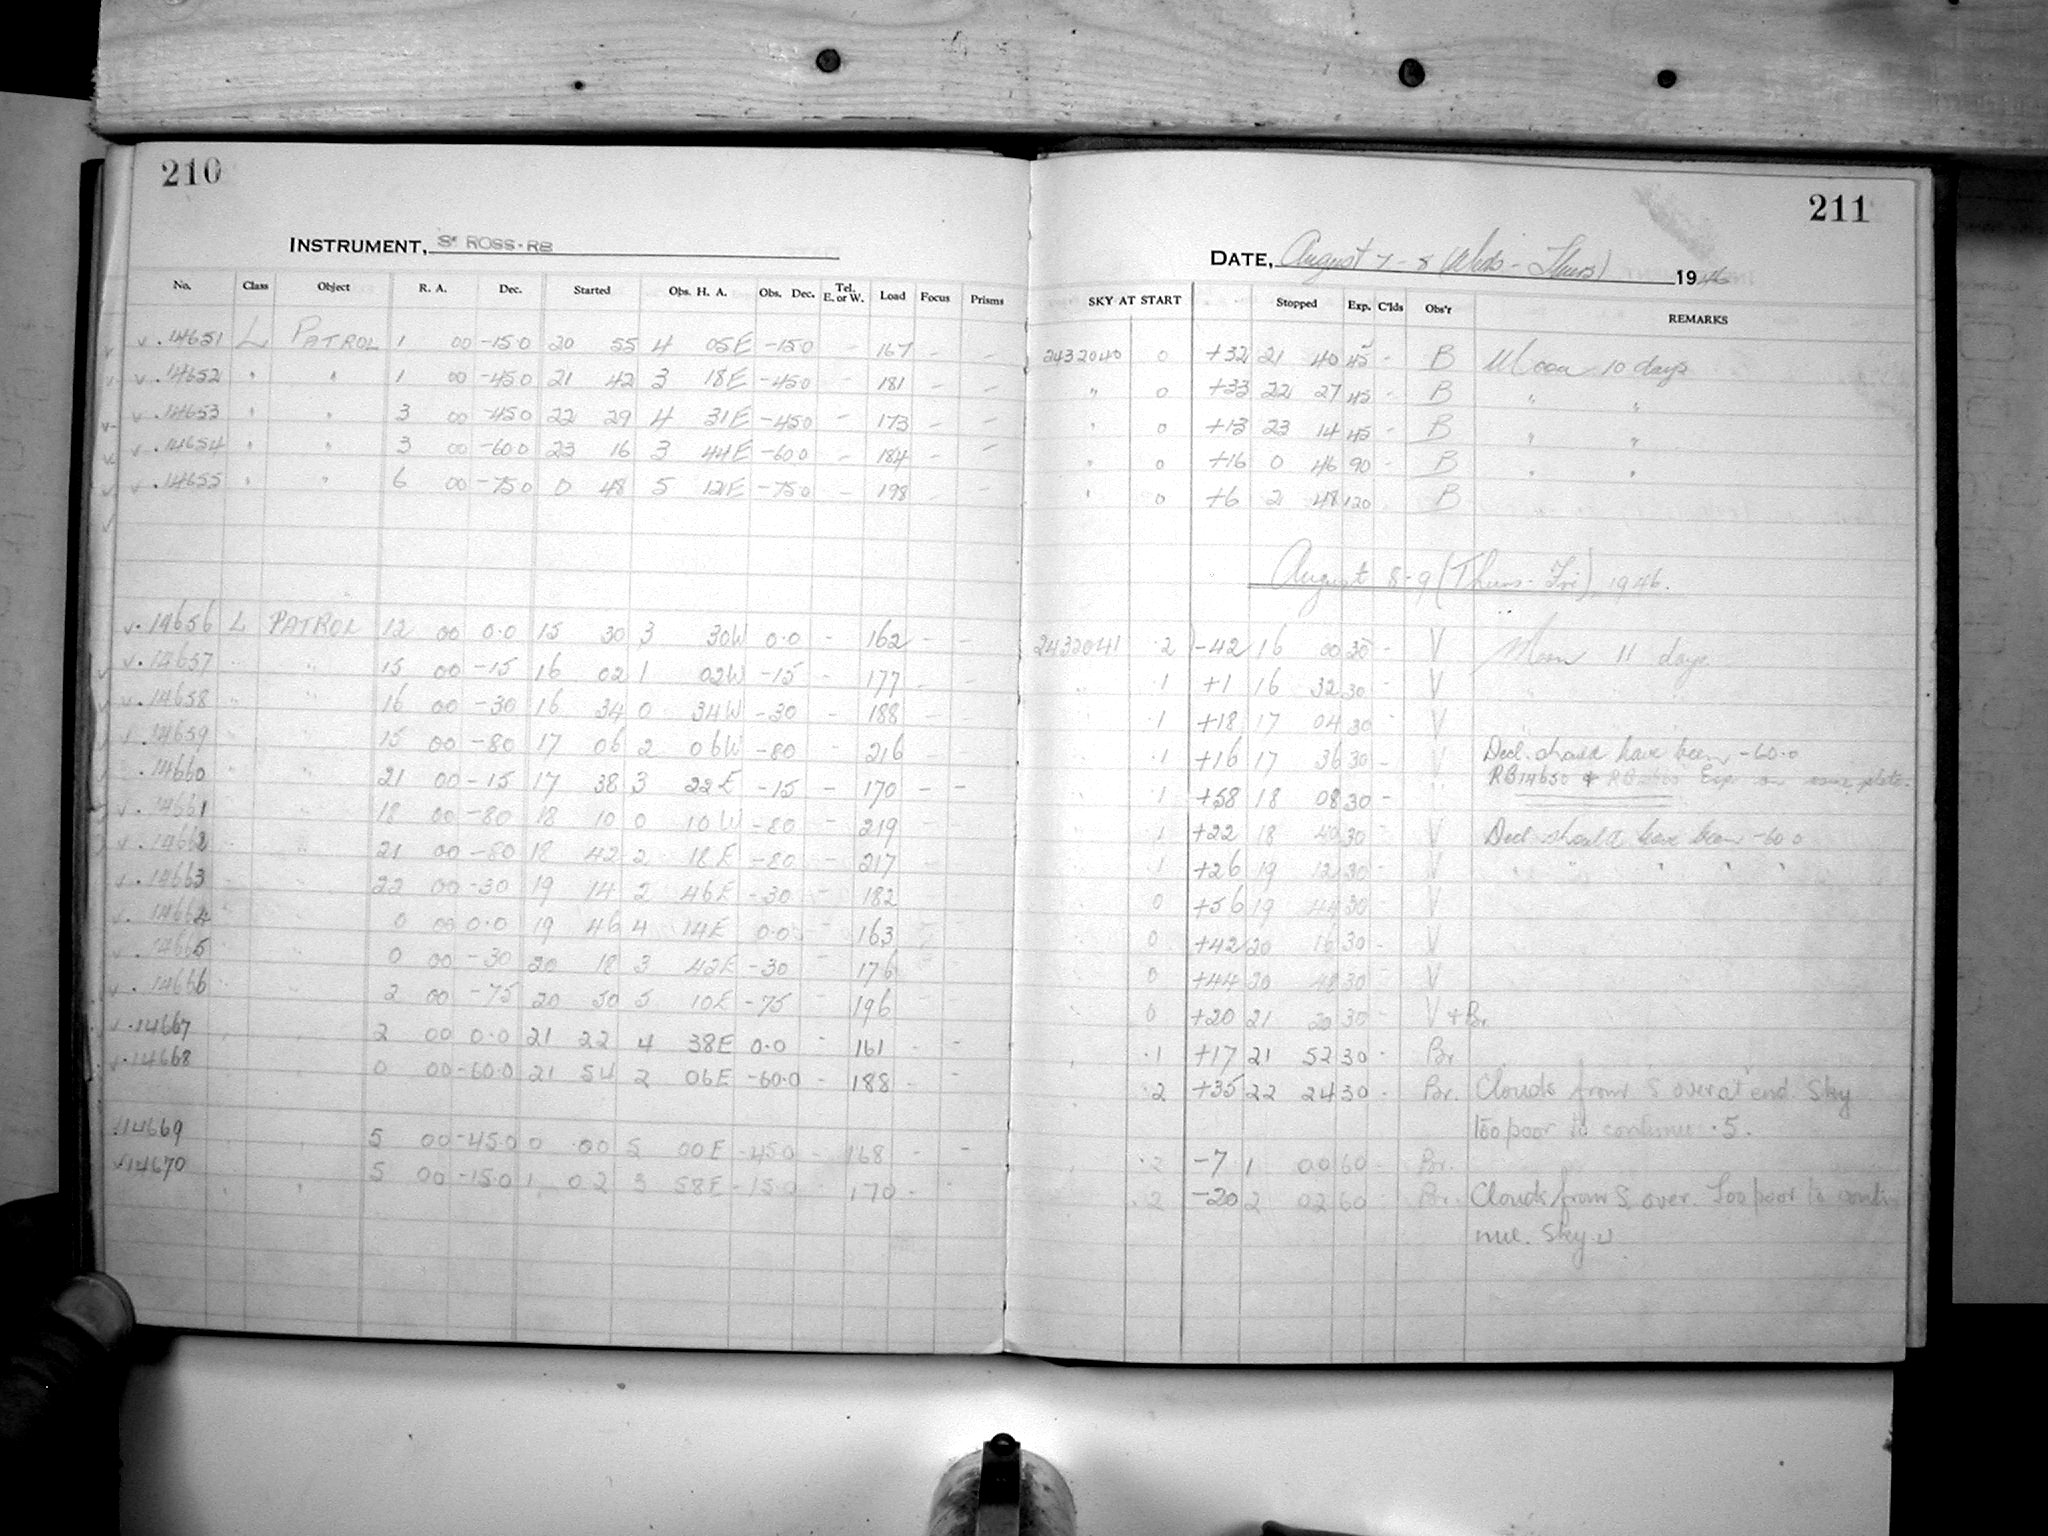 210
INSTRUMENT, ROSS-RB
No. Class Object R. A. Dec. Started Obs. H. A. Obs. Dec. Tel. E. or W. Load Focus Prisms
v .14651 L PATROL 1 00 -150 20 55 4 05E -150 - 167 - -
v .14652 " " 1 00 -450 21 42 3 18E -450 - 181 - -
v .14653 " " 3 00 -450 22 29 4 31E -450 - 173 - -
v .14654 " " 3 00 -600 23 16 3 44E -600 - 184 - -
v .14655 " " 6 00 -750 0 48 5 12E -750 - 198 - -
v. 14656 L PATROL 12 00 0.0 15 30 3 30W 0.0 - 162 - -
v. 14657 " " 15 00 -15 16 02 1 02W -15 - 177 - -
v. 14658 " " 16 00 -30 16 34 0 34W -30 - 188 - -
v. 14659 " " 15 00 -80 17 06 2 06W -80 - 216 - -
. 14660 " " 21 00 -15 17 38 3 22E -15 - 170 - -
v. 14661 " " 18 00 -80 18 10 0 10W -80 - 219 - -
v. 14662 " " 21 00 -80 18 42 2 18E -80 - 217 - -
v. 14663 " " 22 00 -30 19 14 2 46E -30 - 182 - -
v. 14664 " " 0 00 0.0 19 46 4 14E 0.0 - 163 - -
v. 14665 " " 0 00 -30 20 18 3 42E -30 - 176 - -
v. 14666 " " 2 00 -75 20 50 5 10E -75 - 196 - -
v .14667 " " 2 00 0.0 21 22 4 38E 0.0 - 161 - -
v .14668 " " 0 00 -60.0 21 54 2 06E -60.0 - 188 - -
.14669 " " 5 00 -45.0 0 00 5 00E -45.0 - 168 - -
v14670 " " 5 00 -15.0 1 02 3 58E -15.0 170 - -
211
DATE, August 7-8 (Weds-Thurs) 1946
SKY AT START Stopped Exp. C'lds Obs'r REMARKS
2432040 0 +32 21 40 45 - B Moon 10 days
" 0 +33 22 27 45 - B " "
" 0 +13 23 14 45 - B " "
" 0 +16 0 46 90 - B " "
" 0 +6 2 48 120 B
August 8-9 (Thurs-Fri) 1946.
2432041 .2 -42 16 00 30 - V Moon 11 days
" .1 +1 16 32 30 - V
" .1 +18 17 04 30 - V
" .1 +16 17 36 30 - V Decl. should have been -60.0
" .1 +58 18 08 30 - " RB14650 & Exp on same plate.
" .1 +22 18 40 30 - V Decl should have been -60.0
" .1 +26 19 12 30 - V " " " " "
" 0 +56 19 44 30 - V
" 0 +42 20 16 30 - V
" 0 +44 20 48 30 - V
" 0 +20 21 20 30 - V + Br.
" .1 +17 21 52 30 - Br.
" .2 +35 22 24 30 - Br. Clouds from S over at end. Sky
too poor to continue .5.
" .2 -7 1 00 60 - Br.
.2 -20 2 02 60 Br. Clouds from S over. Too poor to conti-
nue. Sky